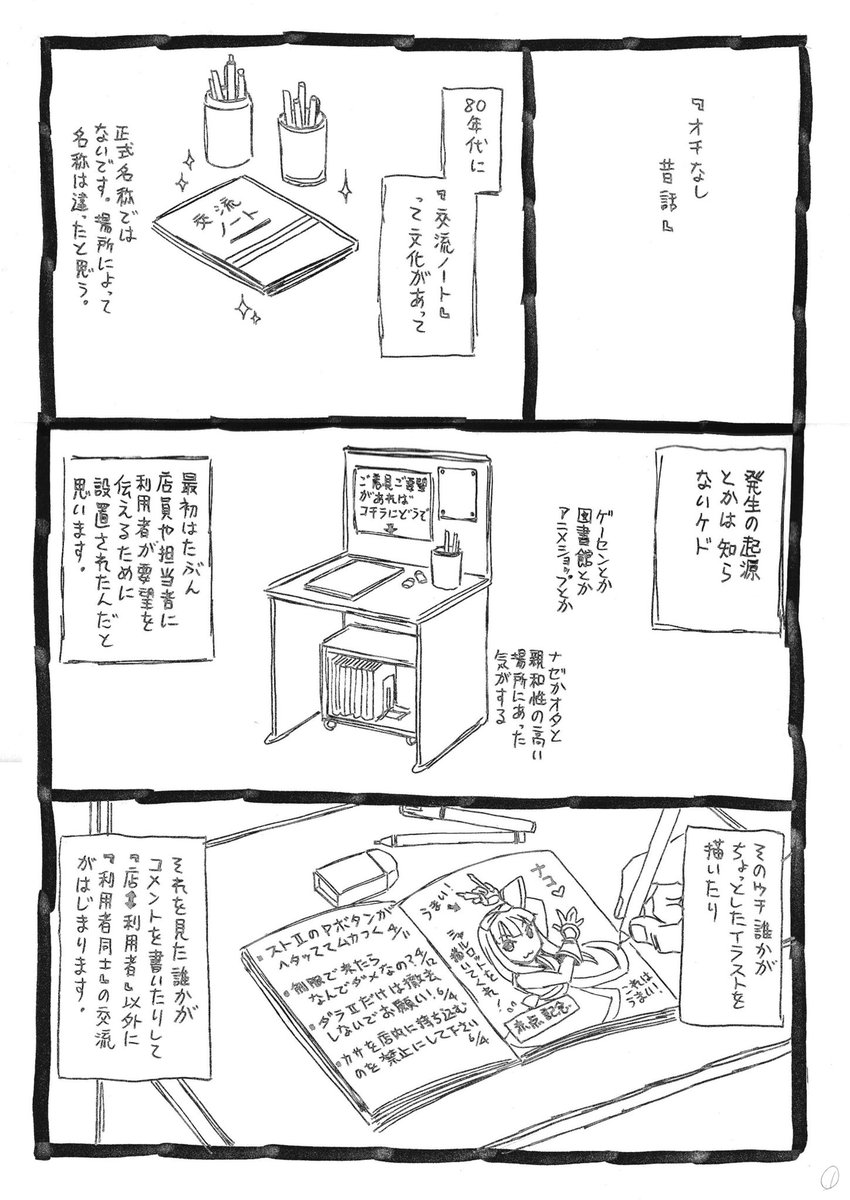 『オチなし
昔話』
80年代に
『交流ノート』
って文化があって
交流
ノート
正式名称では
ないです。場所によって
名称は違ったと思う。
発生の起源
とかは知ら
ないケド
ゲーセンとか
図書館とか
アニメショップとか
ナゼかオタと
親和性の高い
場所にあった
気がする
ご意見ご要望
があれば
コチラにどうぞ
最初はたぶん
店員や担当者に
利用者が要望を
伝えるために
設置されたんだと
思います。
そのウチ誰かが
ちょっとしたイラストを
描いたり
ナコ♡
うまい!
シャルロットを
描いてくれ!
これは
うまい!
来店記念
・ストⅡのPボタンが
ヘタッててムカつく 4/11
・制服で来たら
なんでダメなの? 4/12
・ダラⅡだけは撤去
しないでお願い! 6/4
・カサを店内に持ち込む
のを禁止にして下さい
6/4
それを見た誰かが
コメントを書いたりして
『店⇔利用者』以外に
『利用者同士』の交流
がはじまります。
1